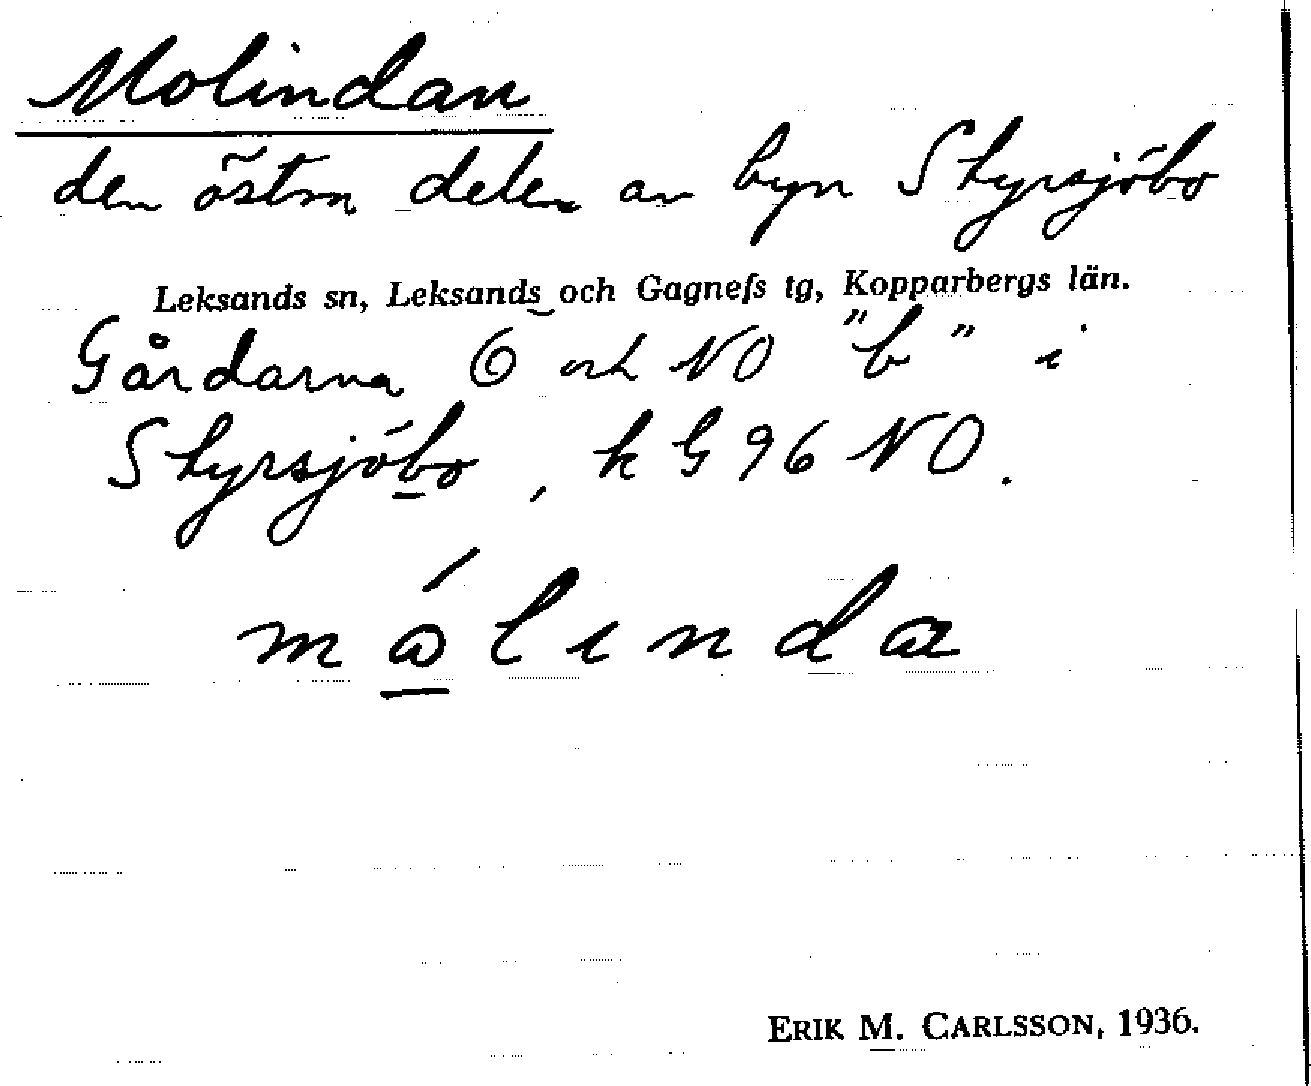 Molindan
den östra delen av byn Styrsjöbo
Leksands sn, Leksands och Gagnefs tg, Kopparbergs län.
Gårdarna Ö och NO "b" i
Styrsjöbo, k G 96 NO.
ERIK M. CARLSSON, 1936.